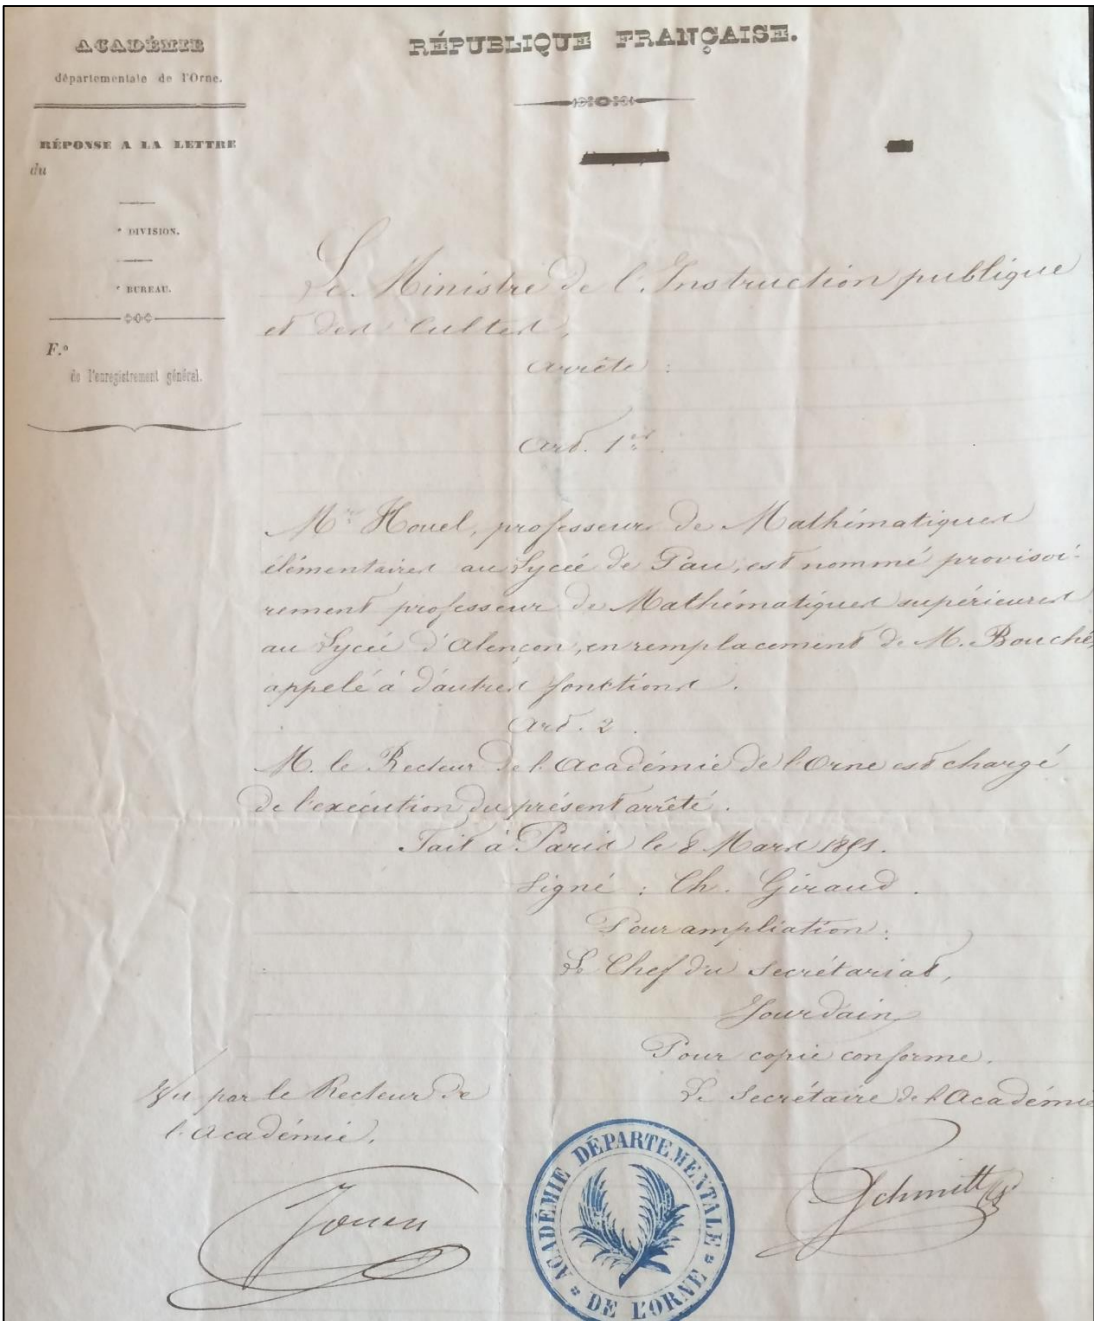 ACADÉMIE
départementale de l'Orne.
RÉPONSE A LA LETTRE
du
e DIVISION.
e BUREAU.
F.o
de l'enregistrement général.
RÉPUBLIQUE FRANÇAISE.
Le Ministre de l'Instruction publique
et des Cultes,
Arrête :
Art. 1er.
Mr Houel, professeur de Mathématiques
élémentaires au Lycée de Pau, est nommé provisoi-
rement professeur de Mathématiques supérieures
au Lycée d'Alençon, en remplacement de M. Bouché,
appelé à d'autres fonctions.
Art. 2.
M. le Recteur de l'Académie de l'Orne est chargé
de l'exécution du présent arrêté.
Fait à Paris le 8 Mars 1851.
Signé : Ch. Giraud.
Pour ampliation :
Le Chef du Secrétariat,
Jourdain
Pour copie conforme.
Le Secrétaire de l'Académie
Vu par le Recteur de
l'Académie.
Jouen
Schmitt
ACADÉMIE DÉPARTEMENTALE
DE L'ORNE